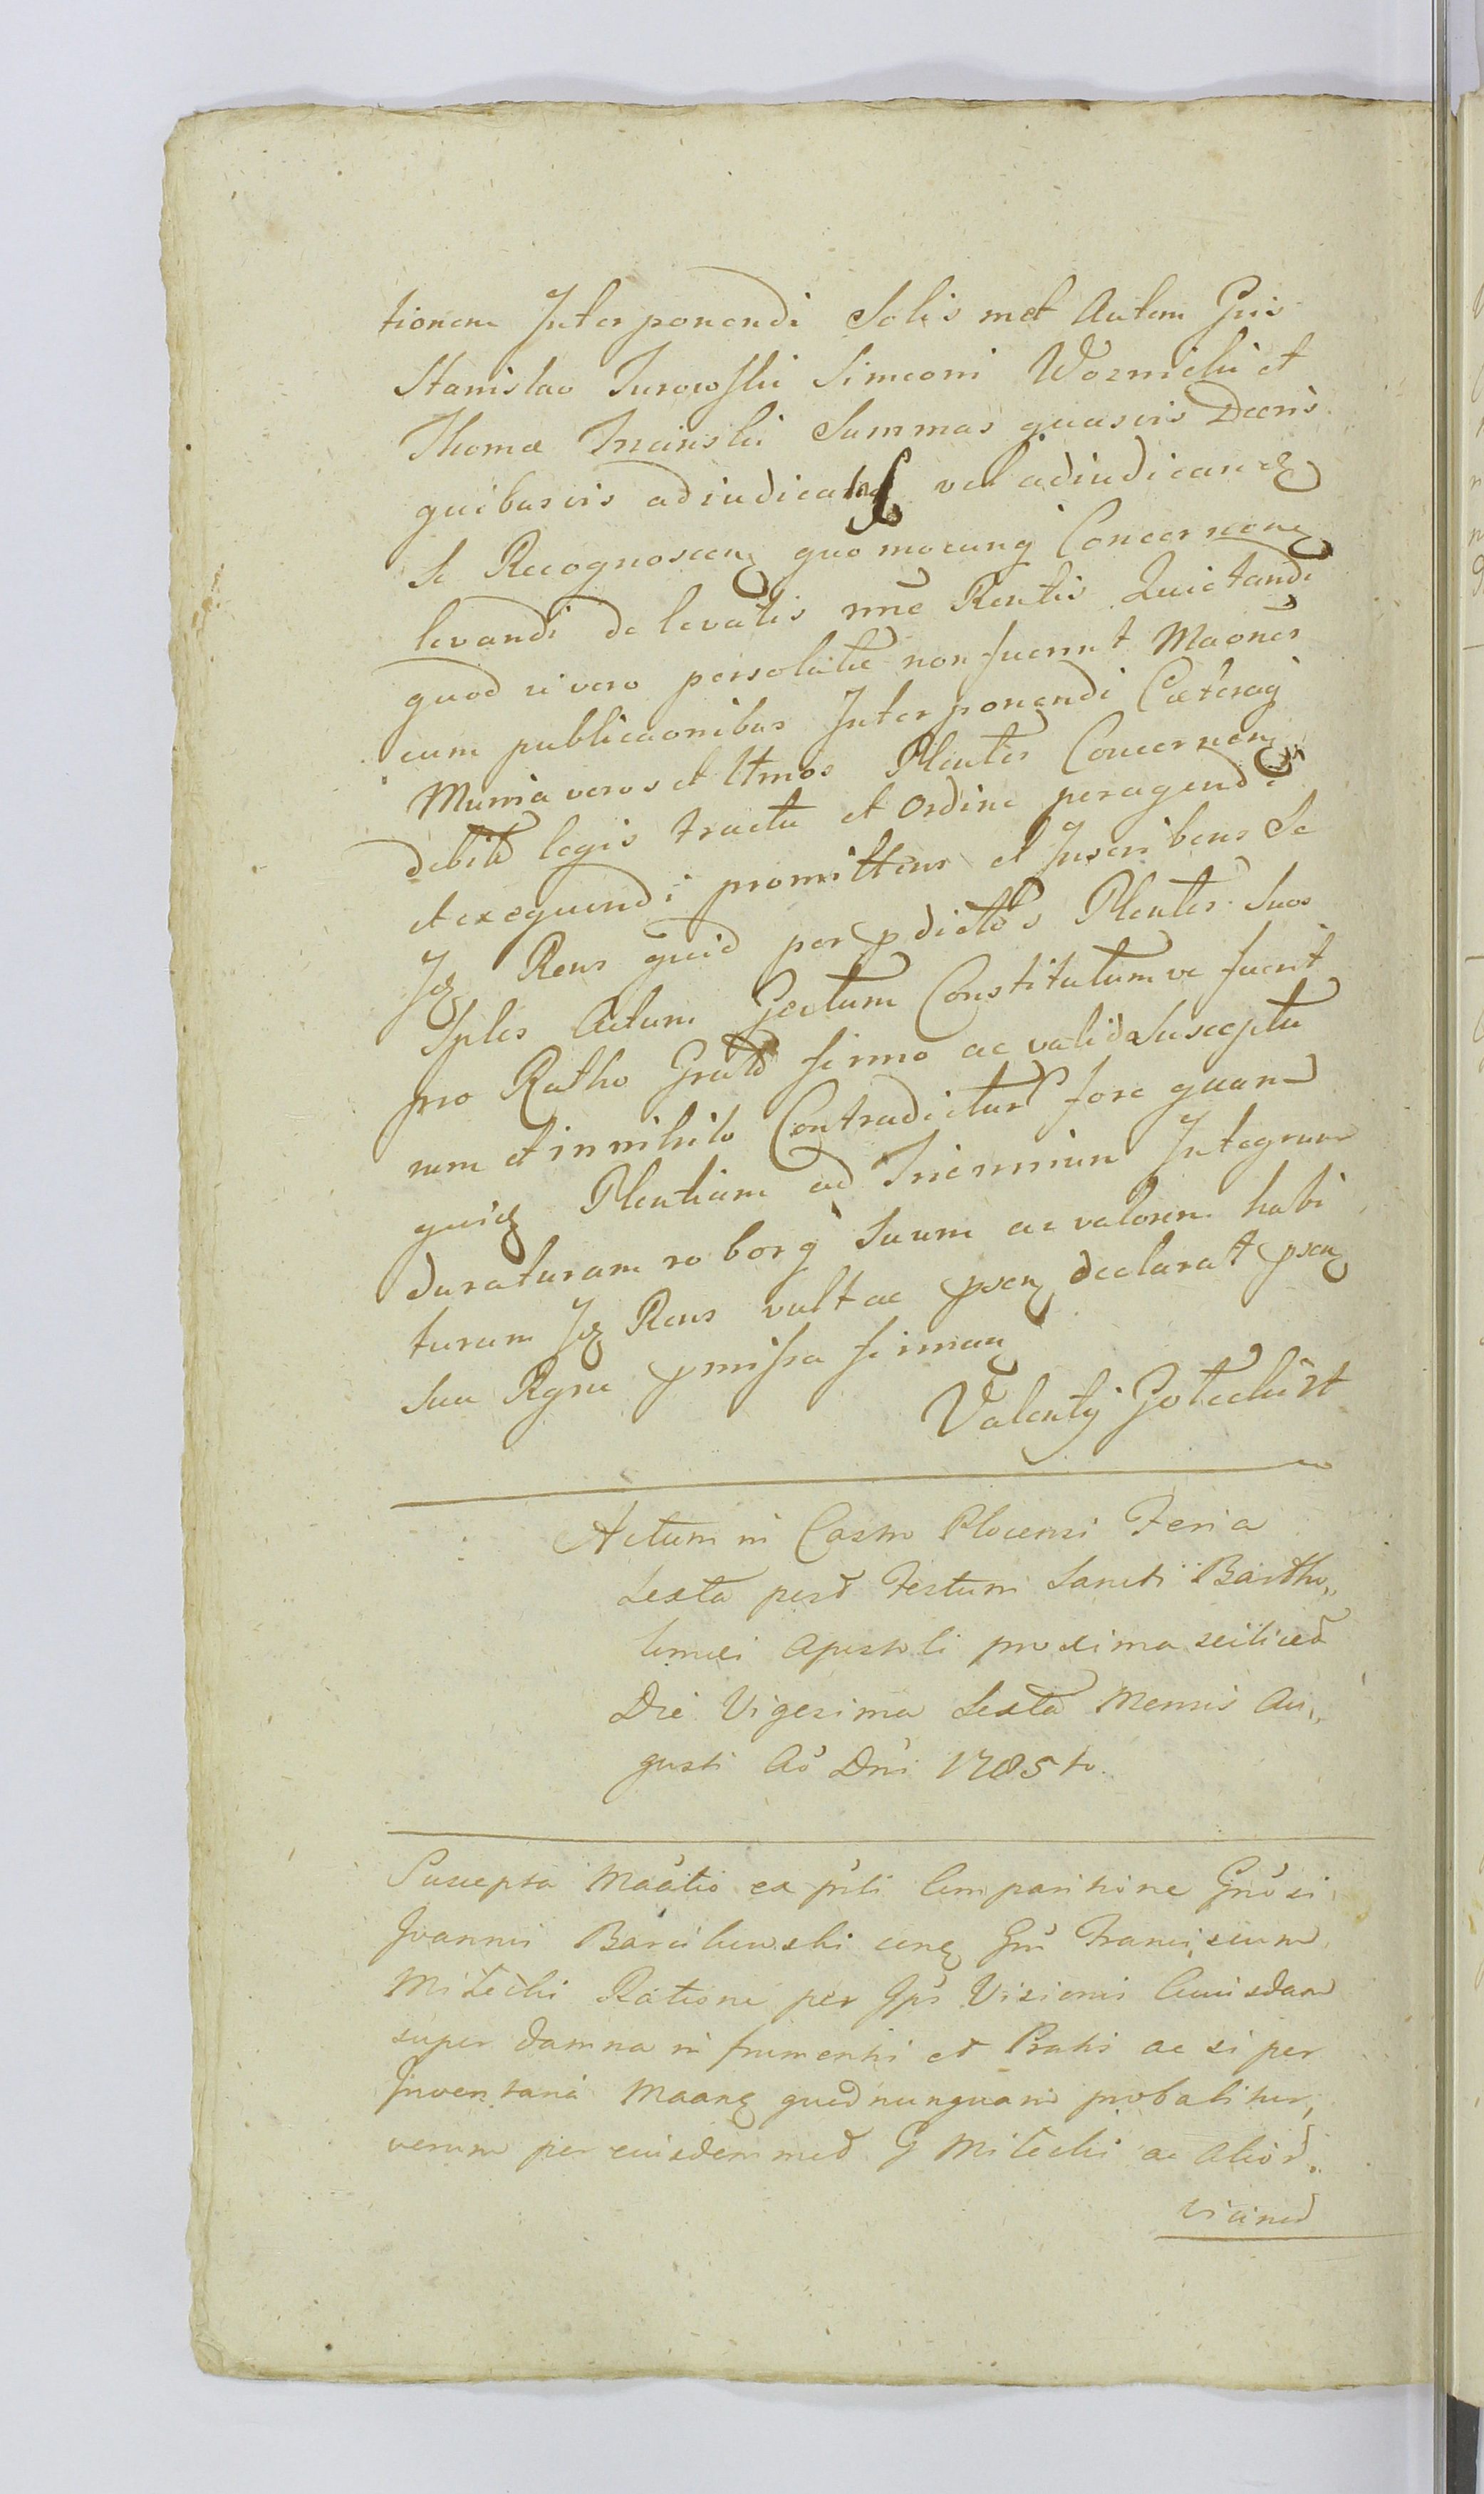 tionem Interponendi Solis met Autem Gnis
Stanislao Turowskii Simeoni Woznicki et
Thomæ Trzcinski Summas quasvis Decris
quibusvis adiudicatas vel adiudicanda
Se Recognoscen quomocunq Concernen
levandi de levatis nne Rentis Quietandi
quod si vero persolutæ non fuerint Maones
cum publicaonibus Interponendi Cæteraq
Munia veros et lttmos Plentes Concernen
debito legis tractu et Ordine peragendi
et exequendi promittens et Inscribens Se
Idem Rens quid per pdictos Plentes Suos
Sples Actum Gestum Constitutumve fuerit
pro Ratho Grato firmo ac valido Susceptu
rum et in nihilo Contradictur fore quam
quidem Plentiam ad Triennium Integrum
duraturam roborq suum ac valorem habi
turam Idem Rens vult ac psen declarat psen
sua Rgne pmissa firman
Valenty Gotecki
Actum in Castro Plocensi Feria
Sexta post Festum Sancti Bartho„
lomæi Apostoli proxima scilicet
Die Vigesima Sexta Mensis Au„
gusti Ao Dni 1785to.
Suscepta Maatio ex psti Comparitione Gnosi
Joannis Barcikowski conq Gm Franciscum
Mitecki Ratione per Ips Visionis Cuiusdam
super damna in frumentis et Pratis ac si per
Inventaria Maanq quod nunquam probabitur,
verum per euisdemmet G Mitecki ac Alior„
vicinor